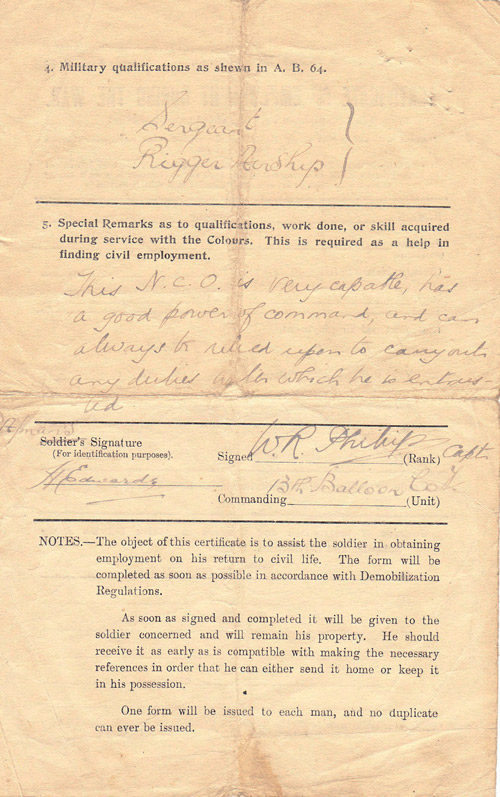 4. Military qualifications as shewn in A. B. 64.
Sergeant
Rigger Airship
5. Special Remarks as to qualifications, work done, or skill acquired
during service with the Colours. This is required as a help in
finding civil employment.
This N.C.O. is very capable, has
a good power of command, and can
always be relied upon to carry out
any duties with which he is entrus-
ted
Soldier's Signature
(For identification purposes).
Signed W.R. Philip (Rank) Capt.
H Edwards
Commanding 13th Balloon Coy. (Unit)
NOTES.—The object of this certificate is to assist the soldier in obtaining
employment on his return to civil life. The form will be
completed as soon as possible in accordance with Demobilization
Regulations.
As soon as signed and completed it will be given to the
soldier concerned and will remain his property. He should
receive it as early as is compatible with making the necessary
references in order that he can either send it home or keep it
in his possession.
One form will be issued to each man, and no duplicate
can ever be issued.